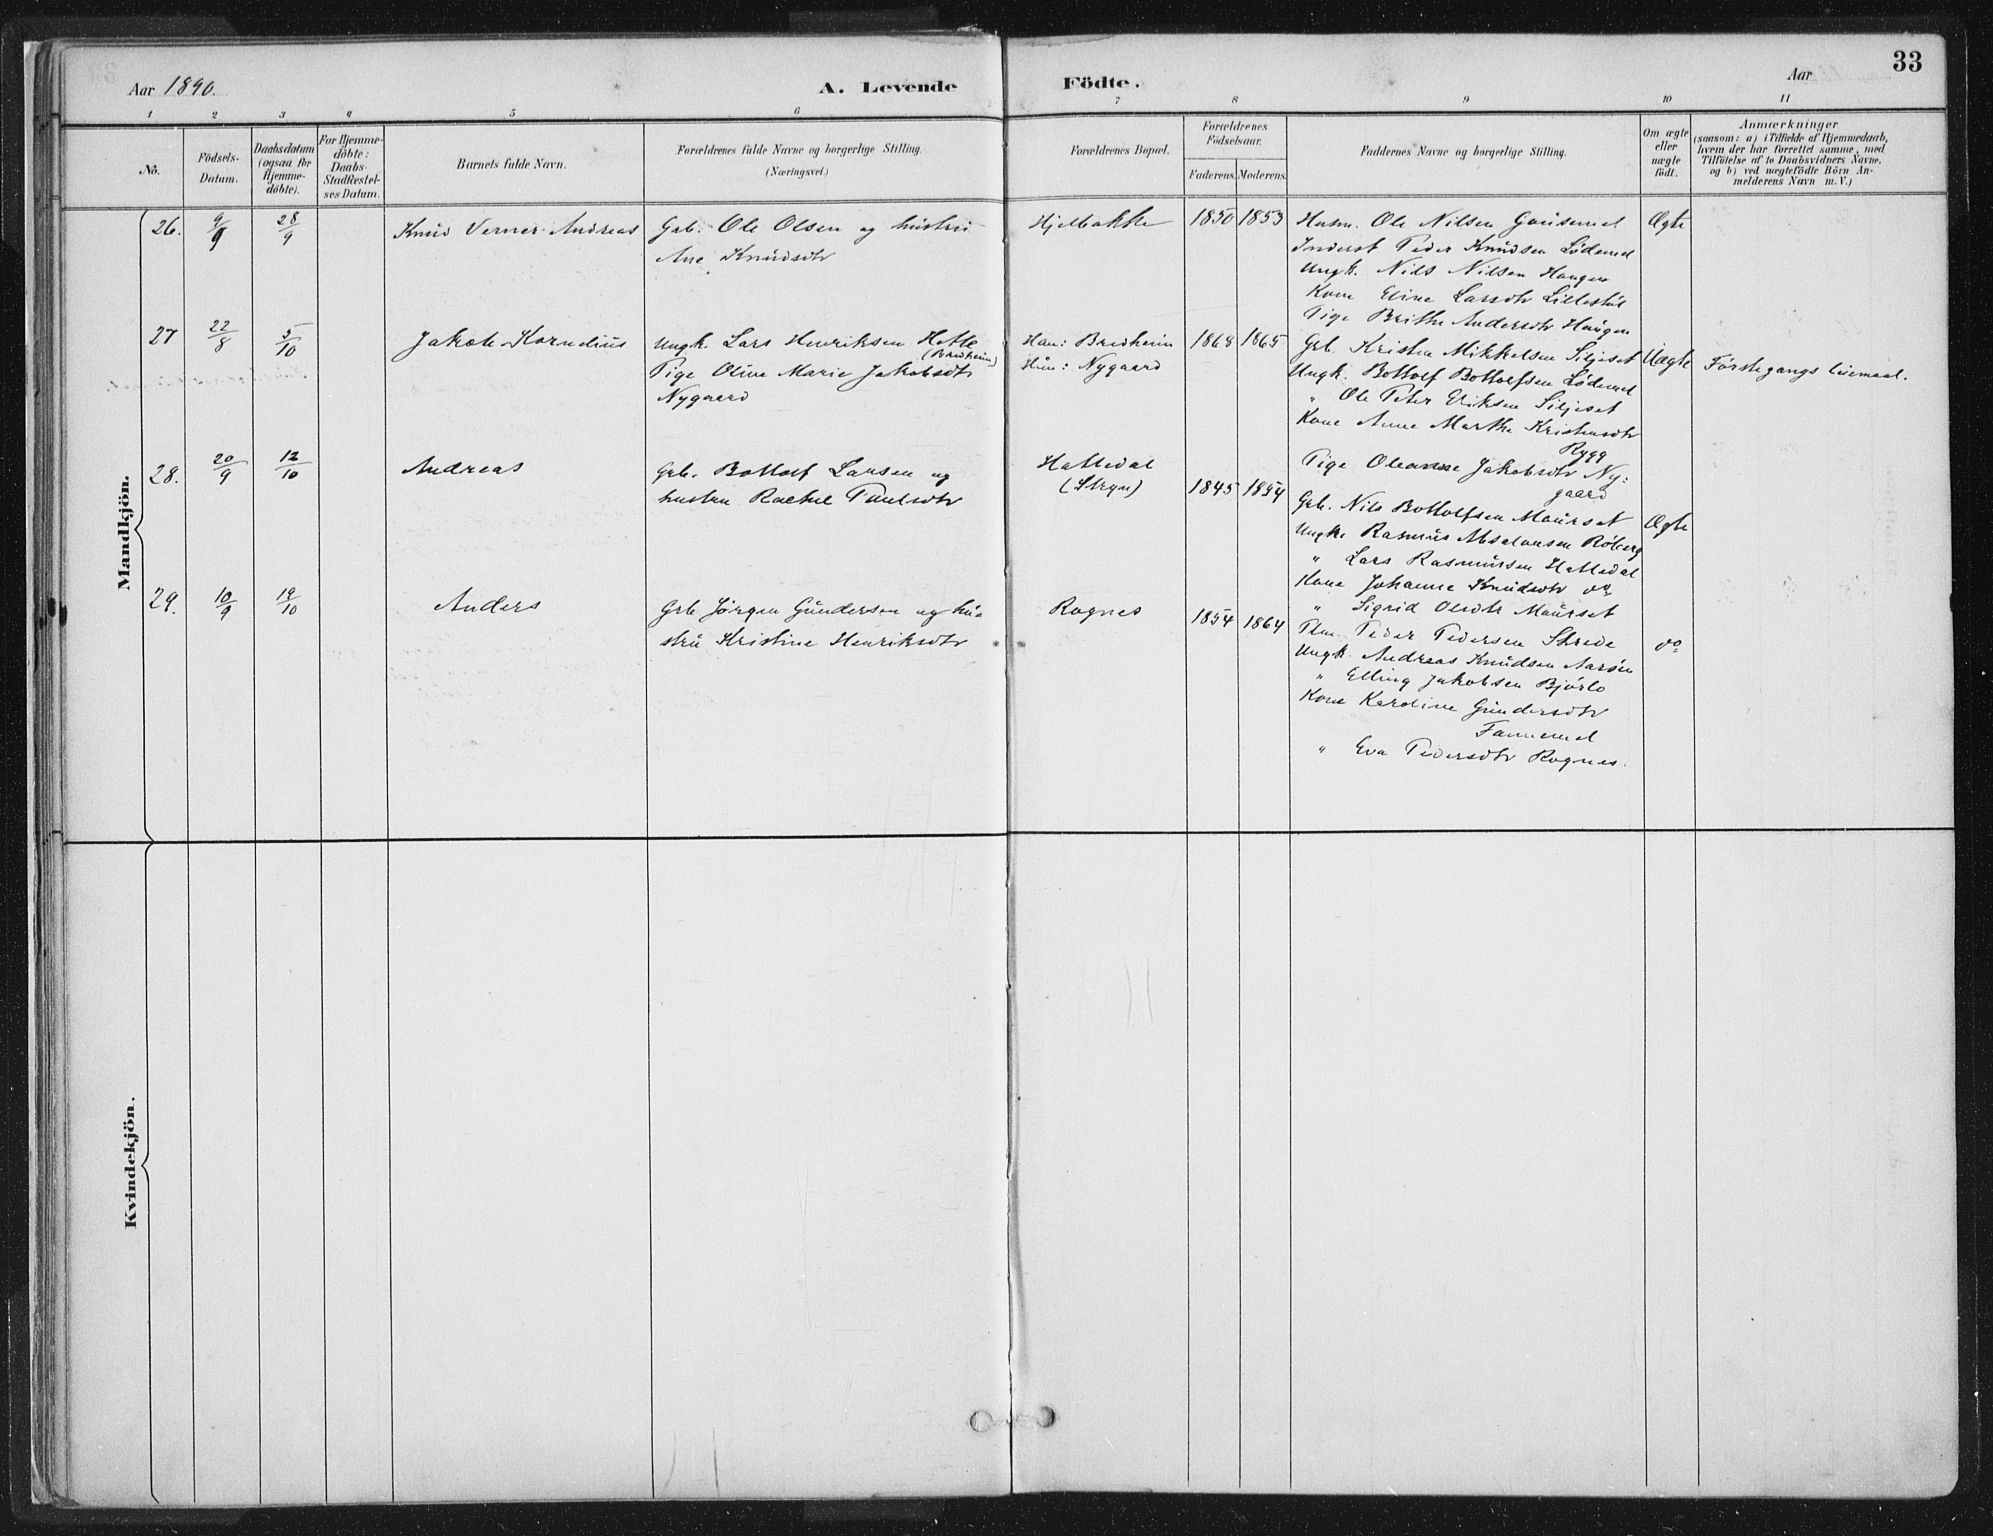 33
Aar 1890.
A. Levende
Födte.
Aar
1 2 3 4 5 6 7 8 9 10 11
No.
Födsels-
Datum.
Daabsdatum
(ogsaa for
Hjemme-
döbte).
For Hjemme-
döbte:
Daabs-
Stadfæstel-
ses Datum.
Barnets fulde Navn.
Forældrenes fulde Navne og borgerlige Stilling.
(Næringsvei.)
Forældrenes Bopæl.
Forældrenes
Födselsaar.
Faderens. Moderens.
Faddernes Navne og borgerlige Stilling.
Om ægte
eller
uægte
födt.
Anmærkninger
(saasom: a) i Tilfælde af Hjemmedaab,
hvem der har forrettet samme, med
Tilföielse af to Daabsvidners Navne,
og b) ved uægtefödte Börn An-
melderens Navn m. V.)
Mandkjön.
26. 9/9 28/9 Knud Verner Andreas
Grb. Ole Olsen og hustru
Ane Knudsdtr
Hjelbakke 1850 1853
Husm. Ole Nilsen Gausemel
Inderst Peder Knudsen Lödemel
Ungk. Nils Nilsen Haugen
Kone Eline Larsdtr Lillestöl
Pige Brithe Andersdtr Haugen
Ægte
27 22/8 5/10 Jakob Kornelius
Ungk. Lars Henriksen Hetle
(Bredheim)
Pige Oline Marie Jakobsdtr
Nygaard
Han: Bredheim
Hun: Nygaard
1868 1865
Grb. Kristen Mikkelsen Siljeset
Ungk. Bottolf Bottolfsen Lödemel
" Ole Peter Eriksen Siljeset
Kone Anne Marthe Kristensdtr
Rygg
Pige Oleanne Jakobsdtr Ny:
gaard
Uægte
Förstegangs leiemaal.
28. 20/9 12/10 Andreas
Grb. Bottolf Larsen og
hustru Rachel Paulsdtr
Hattedal
(Stryn)
1845 1854
Grb. Nils Bottolfsen Maurset
Ungk. Rasmus Absalonsen Röberg
" Lars Rasmussen Hattedal
Kone Johanne Knudsdtr do
" Sigrid Olsdtr Maurset
Ægte
29. 10/9 19/10 Anders
Grb Jörgen Gundersen og hu-
stru Kristine Henriksdtr
Rognes
1854 1864
Peder Pedersen Skrede
Ungk. Andreas Knudsen Aaröen
" Elling Jakobsen Bjórlo
Kone Karoline Gundersdtr
Fannemel
" Eva Pedersdtr Rognes.
do
Kvindekjön.